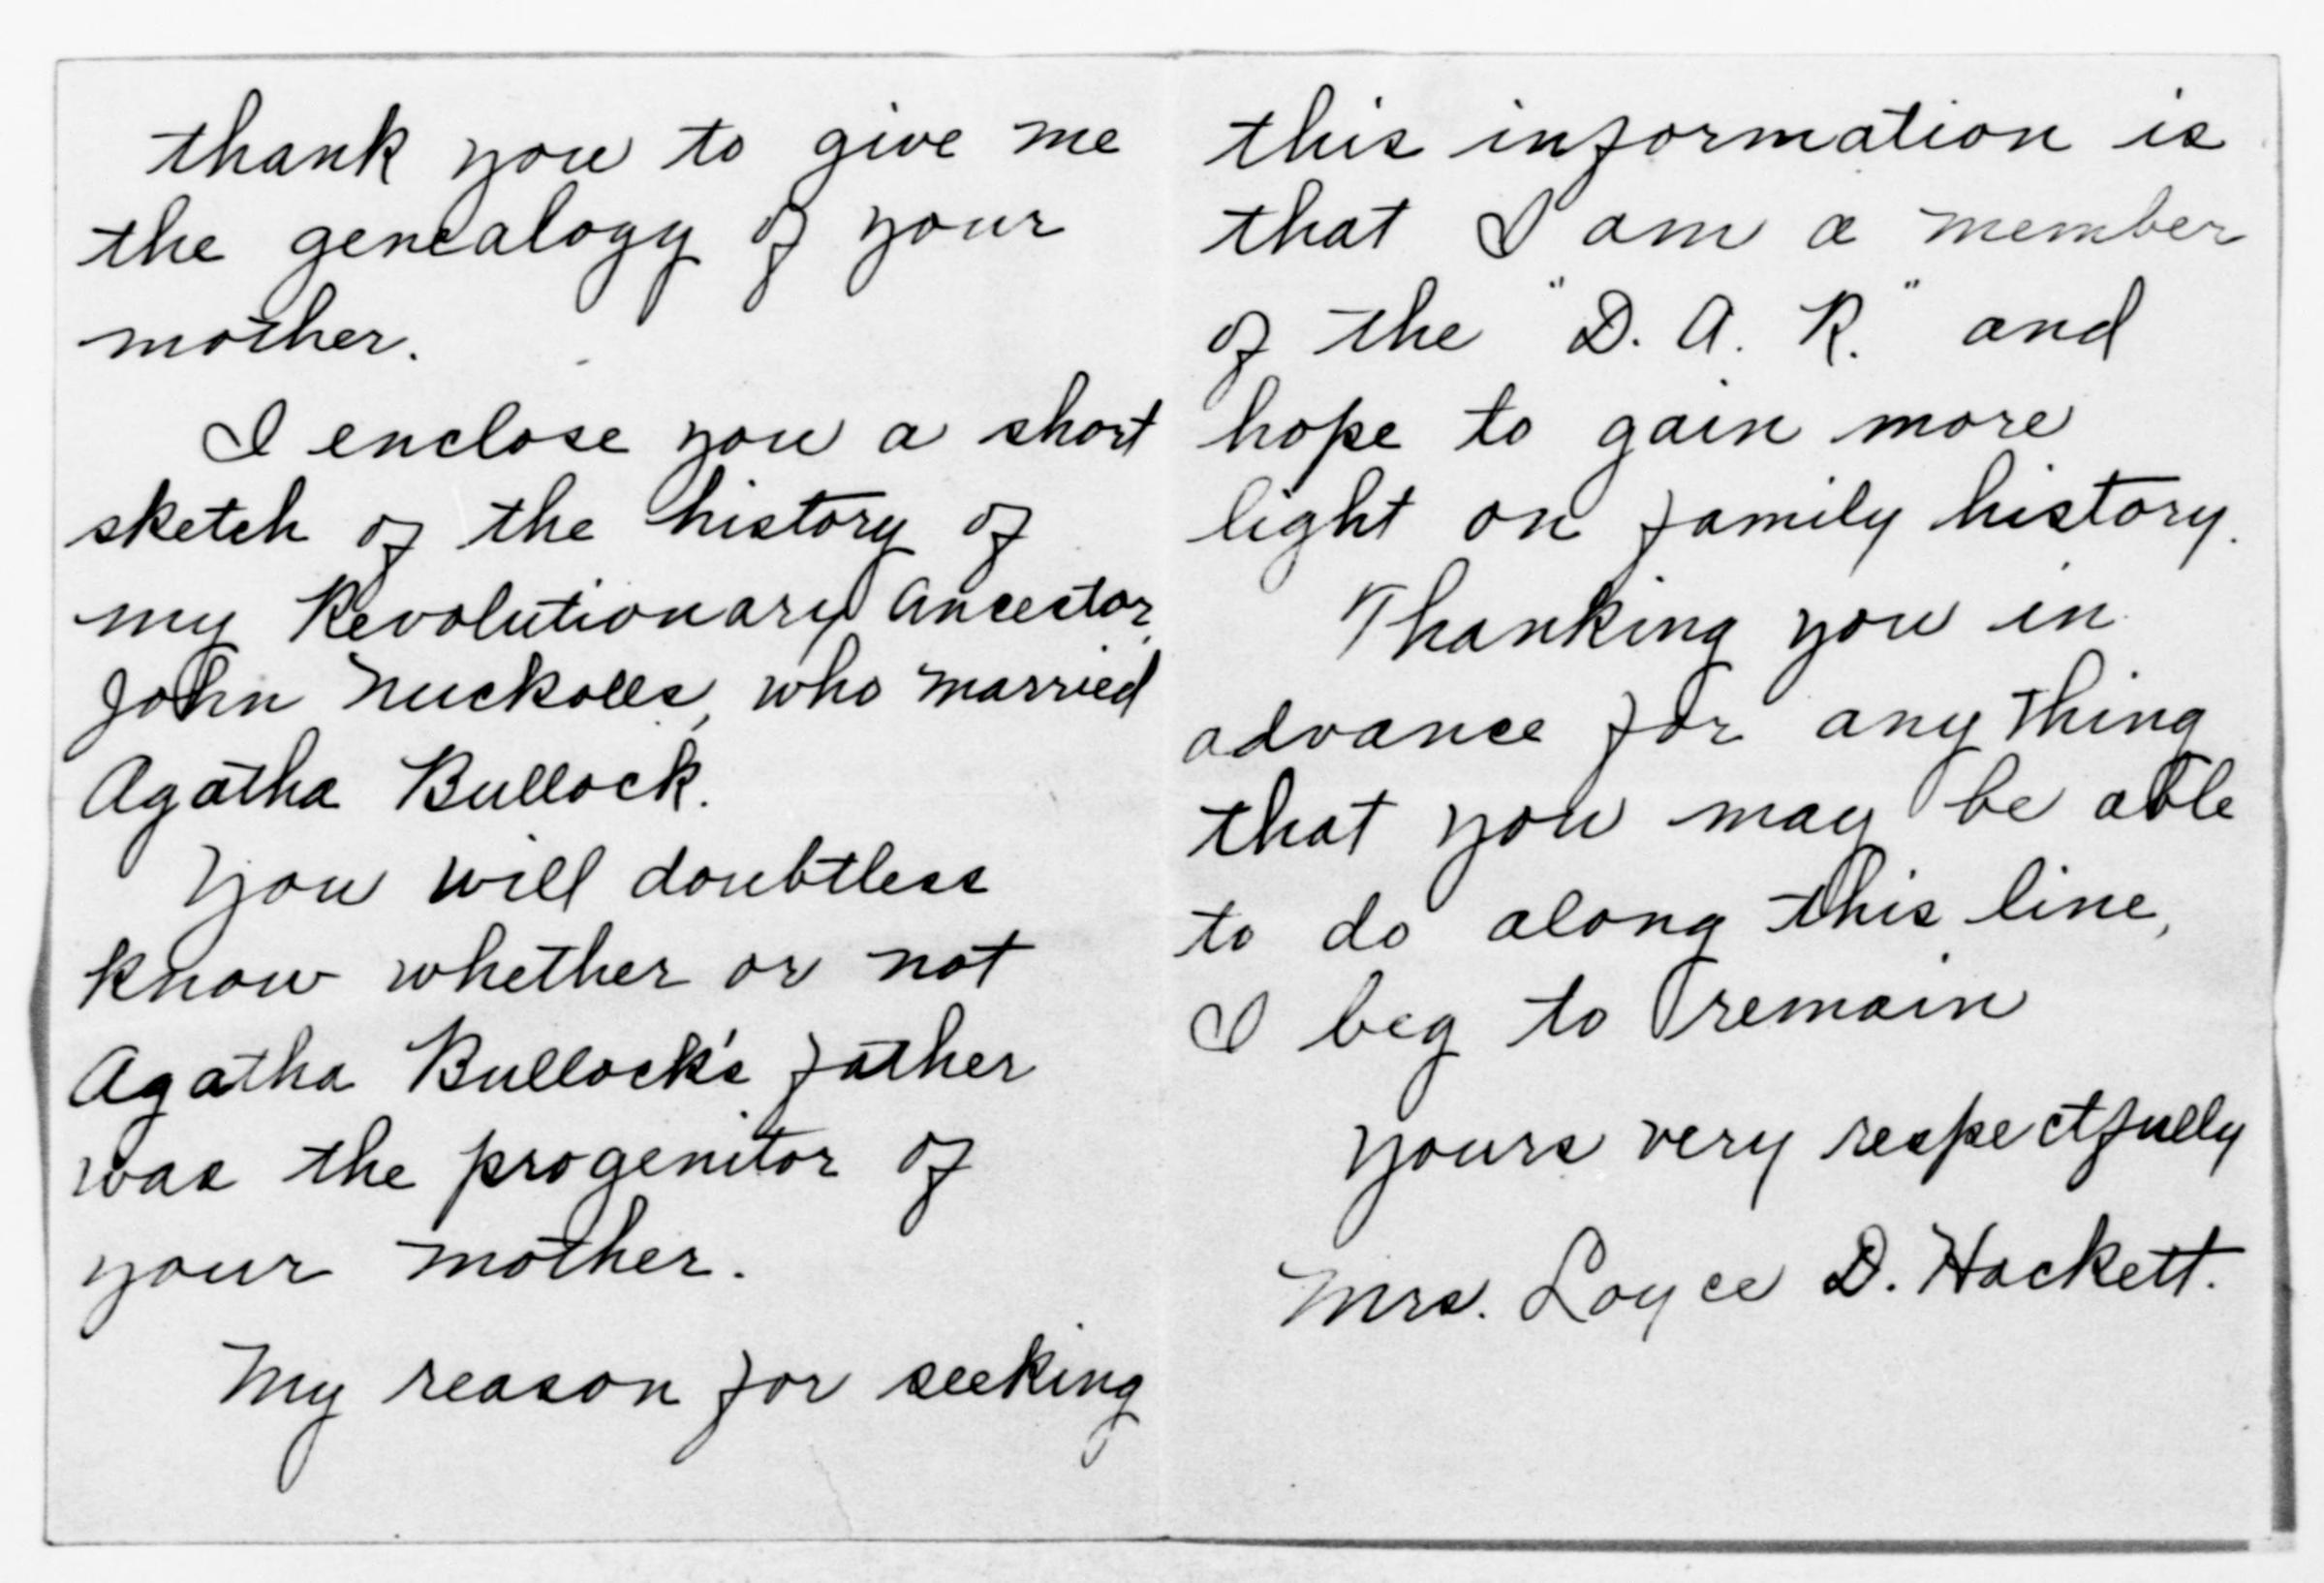 thank you to give me
the genealogy of your
mother.
I enclose you a short
sketch of the history of
my Revolutionary Ancestor,
John Nuckolls, who married
Agatha Bullock.
You will doubtless
know whether or not
Agatha Bullock's father
was the progenitor of
your mother.
My reason for seeking
this information is
that I am a member
of the "D. A. R." and
hope to gain more
light on family history.
Thanking you in
advance for any thing
that you may be able
to do along this line,
I beg to remain
yours very respectfully
Mrs. Loyce D. Hackett.